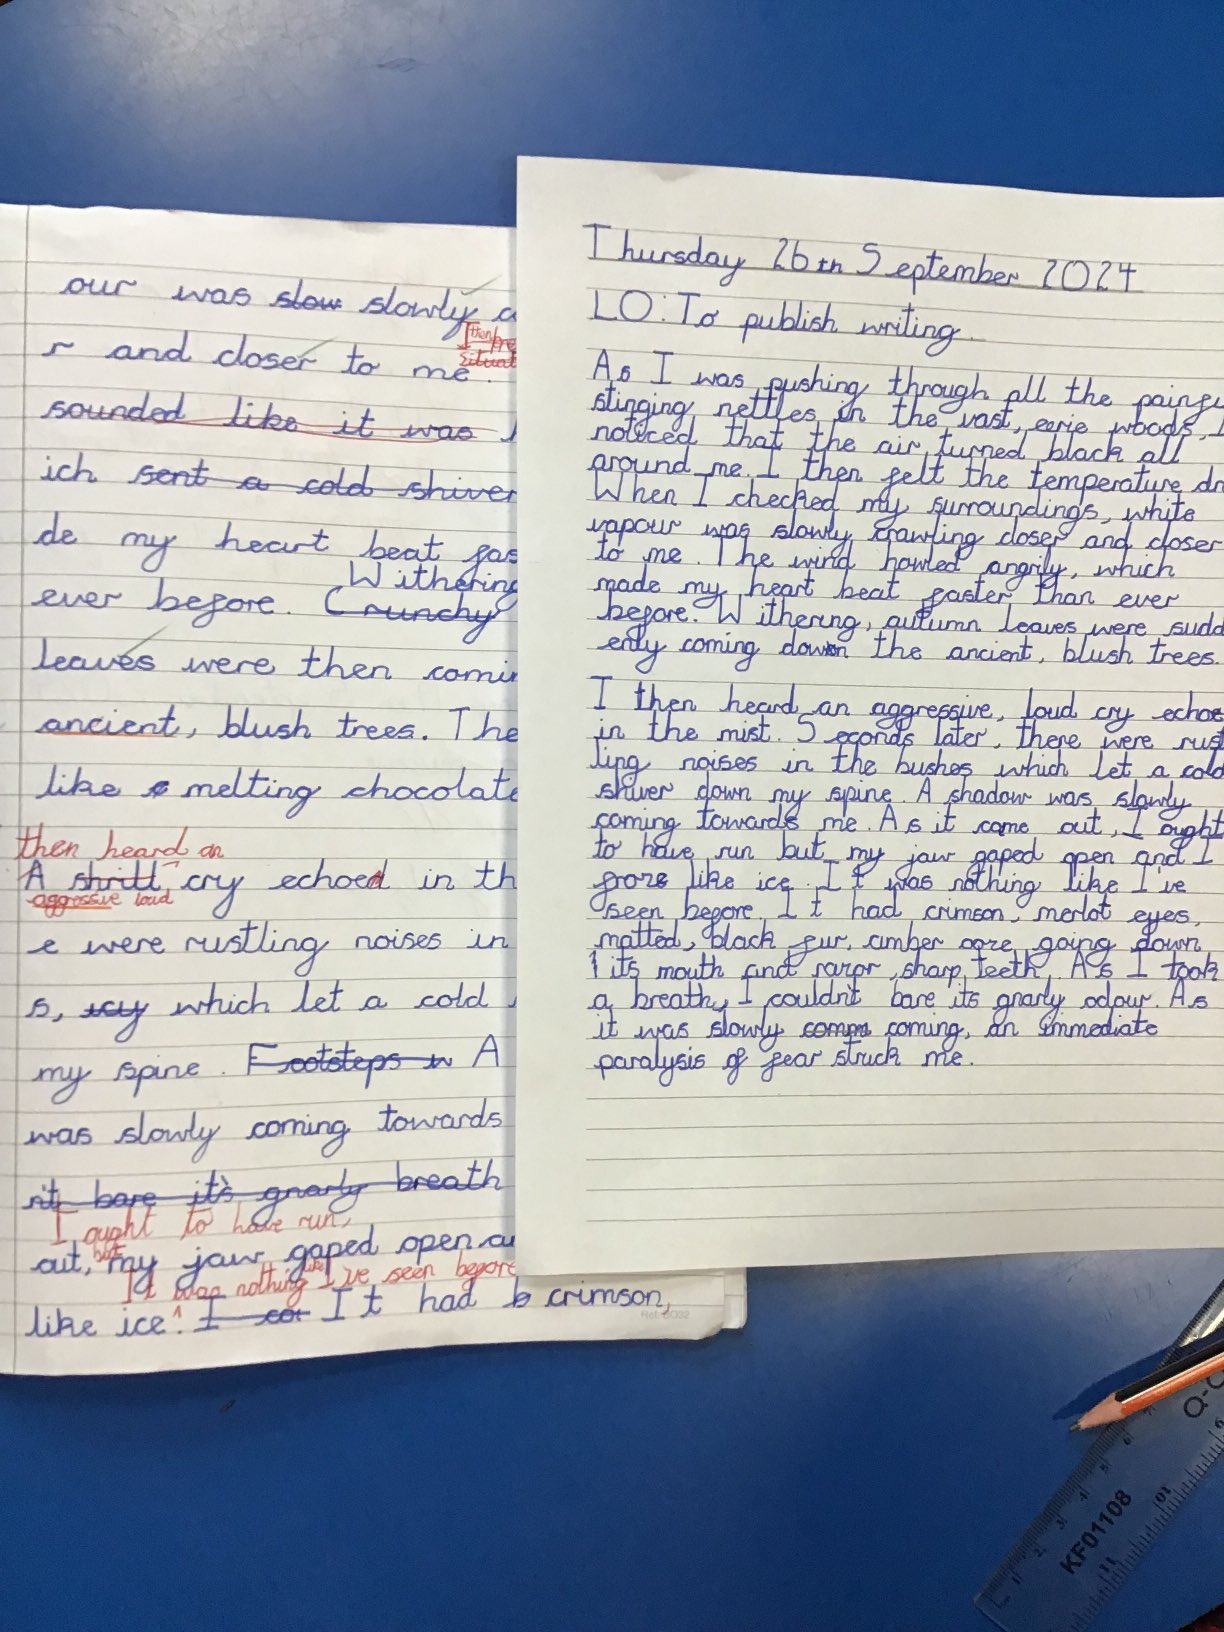 our was slow slowly
r and closer to me.
sounded like it was
ich sent a cold shiver
de my heart beat fas
Withering
ever before. Crunchy
leaves were then comin
ancient, blush trees. The
like melting chocolate
then heard an
A shrill, cry echoed in th
aggressive loud
e were rustling noises in
s, icy which let a cold
my spine. Footsteps w A
was slowly coming towards
n't bare it's gnarly breath
I ought to have run,
but
out, my jaw gaped open a
It was nothing like I've seen before
like ice. I cou It had b crimson,
Ref:
Thursday 26th September 2024
LO: To publish writing.
As I was pushing through all the painfu
stinging nettles in the vast, eerie woods, I
noticed that the air turned black all
around me. I then felt the temperature dr
When I checked my surroundings, white
vapour was slowly crawling closer and closer
to me. The wind howled angrily, which
made my heart beat faster than ever
before. Withering, autumn leaves were sudd
enly coming down the ancient, blush trees.
I then heard an aggressive, loud cry echoe
in the mist. Seconds later, there were rust
ling noises in the bushes which let a cold
shiver down my spine. A shadow was slowly
coming towards me. As it came out, I ought
to have run but my jaw gaped open and I
froze like ice. It was nothing like I've
seen before. It had crimson, merlot eyes,
matted, black fur, amber ooze going down
its mouth and razor, sharp teeth. As I took
a breath, I couldn't bare its gnarly odour. As
it was slowly comm coming, an immediate
paralysis of fear struck me.
KF01108